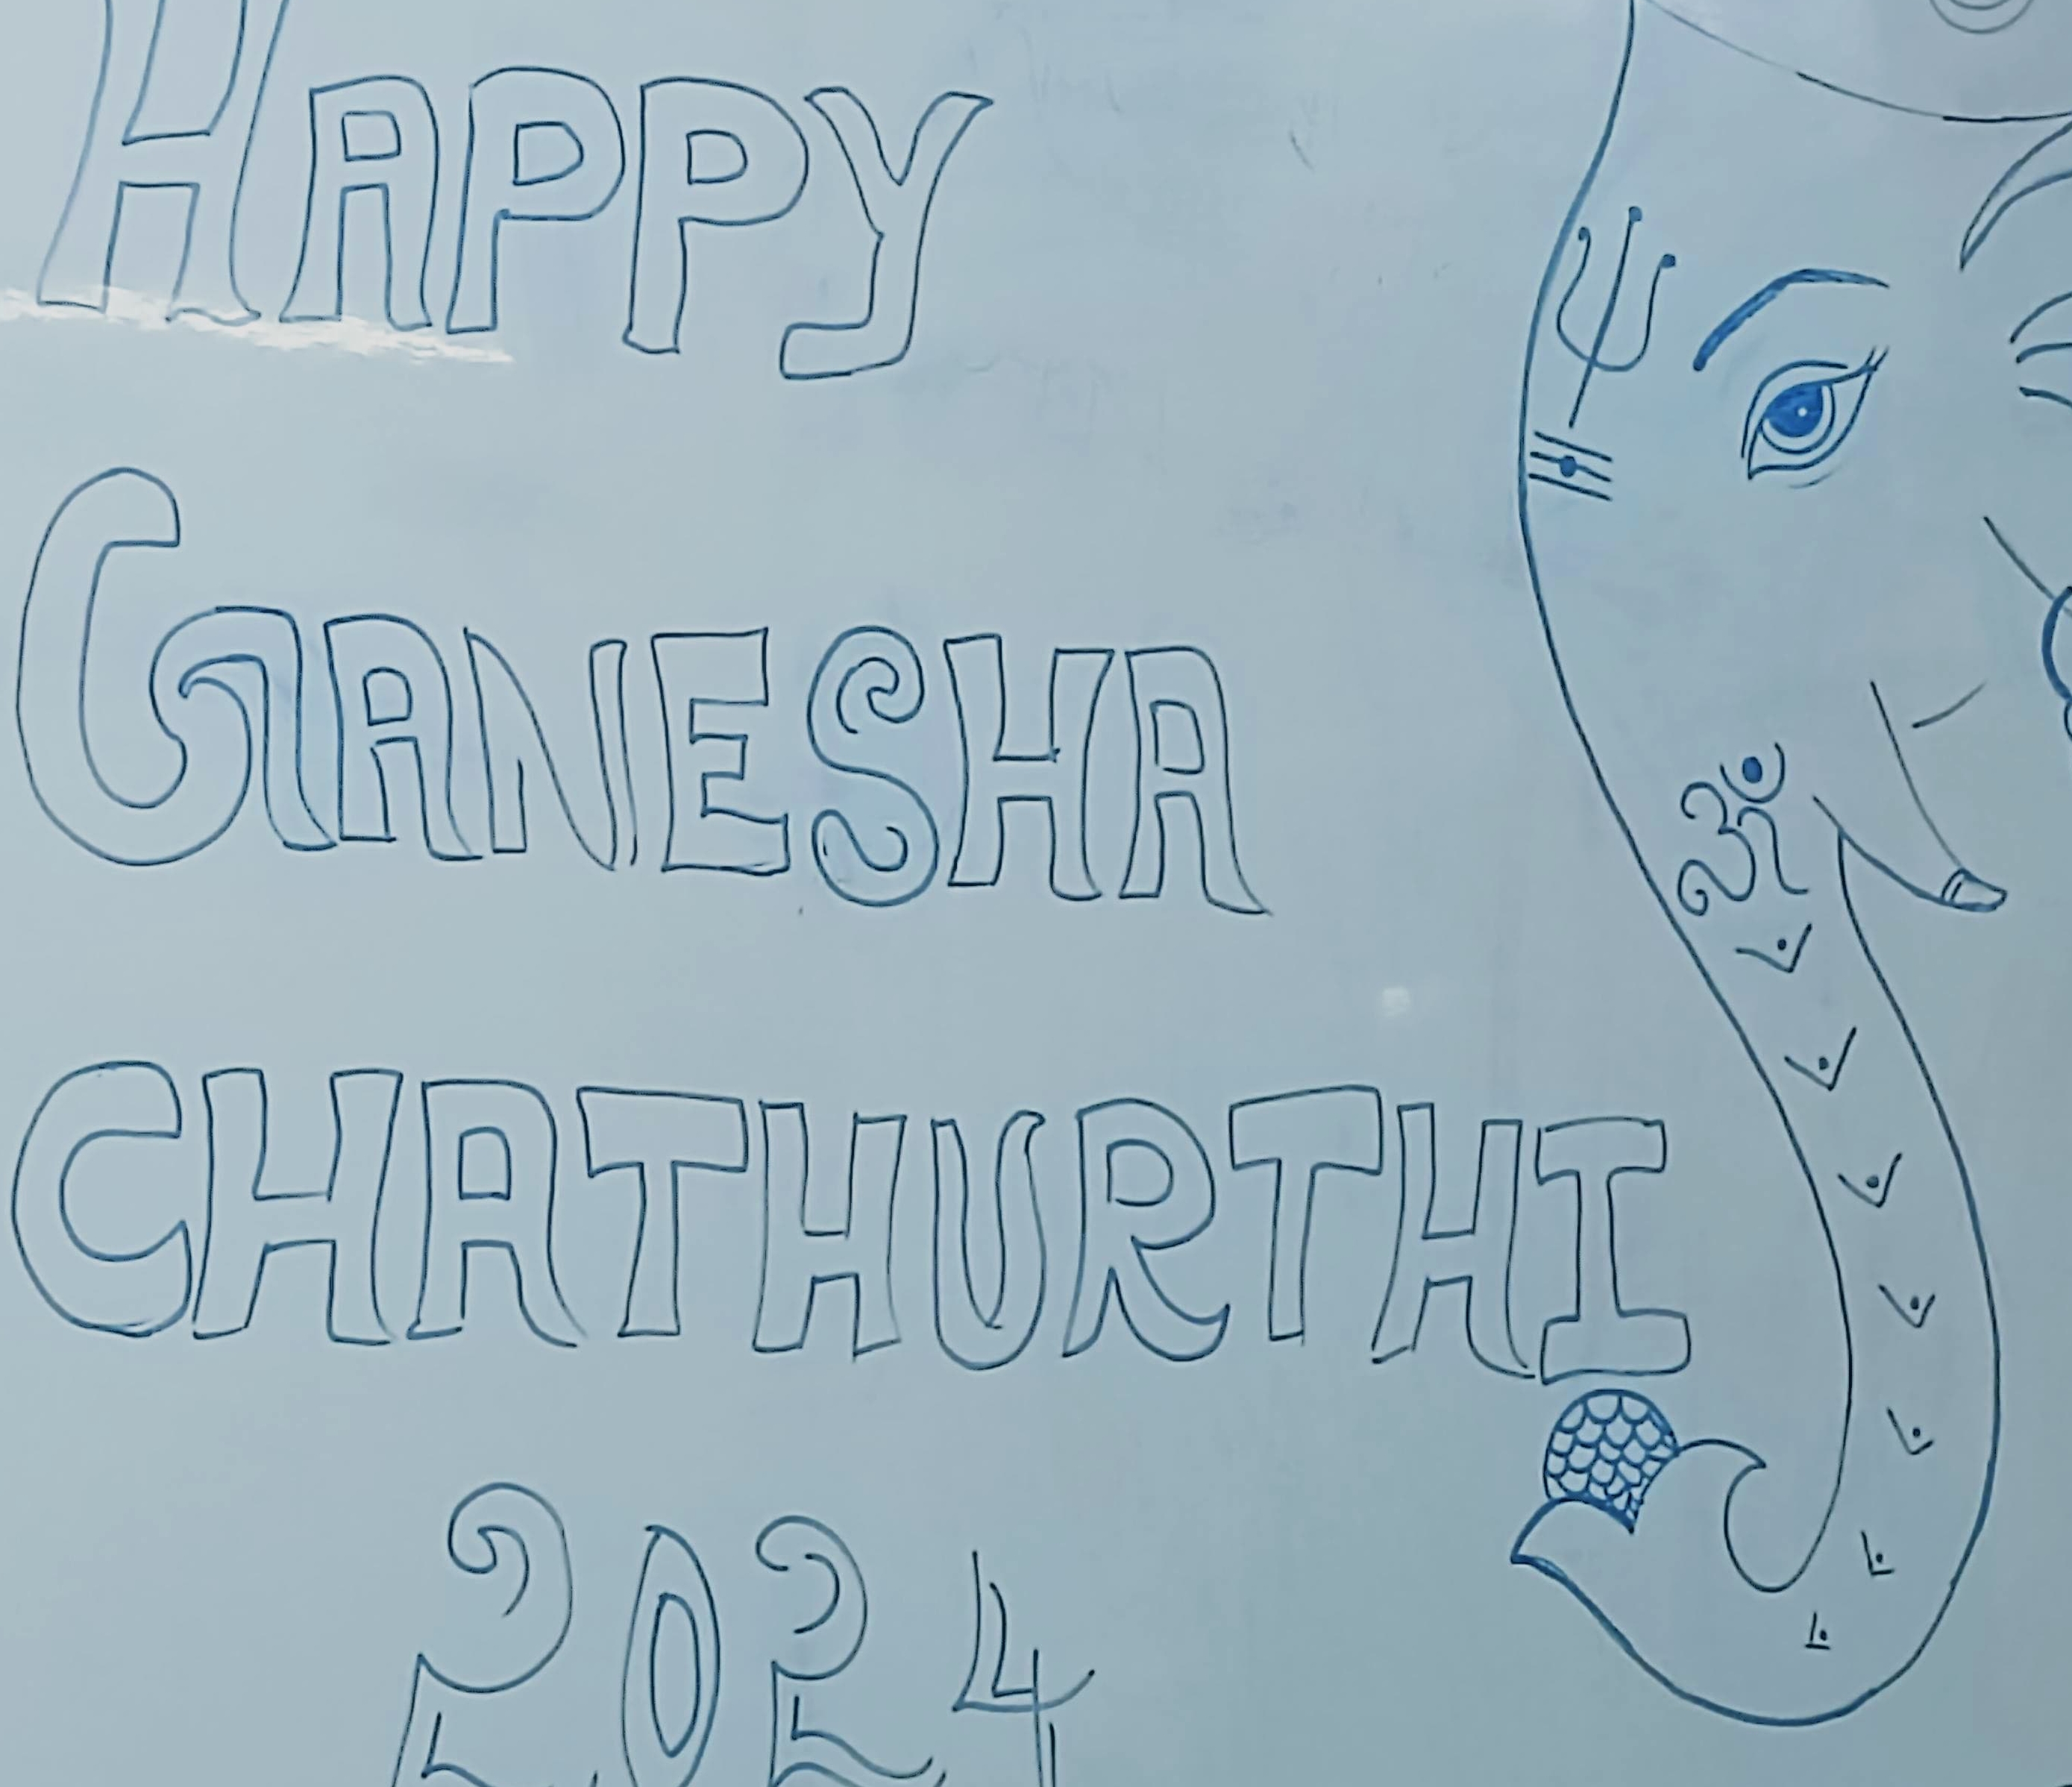 HAPPY
GANESHA
CHATHURTHI
2024
ॐ